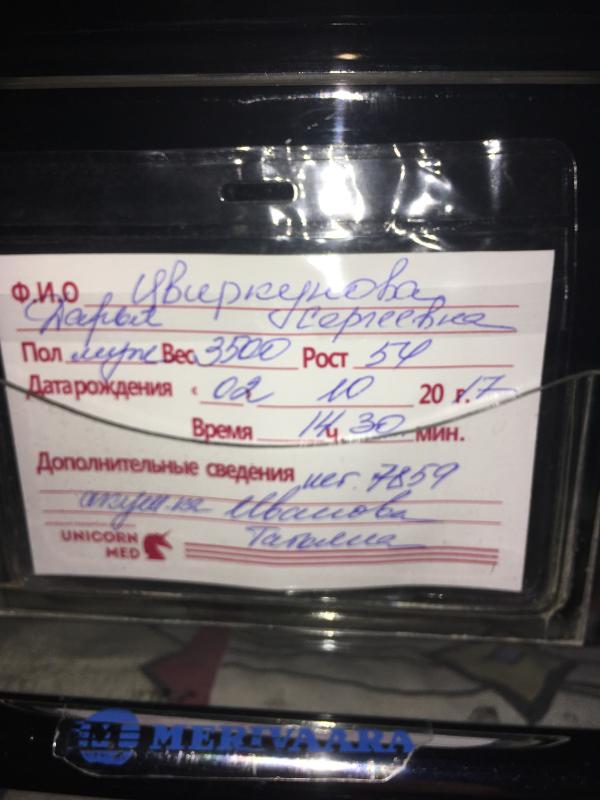 Ф.И.О Цвиркунова
Дарья Сергеевна
Пол муж Вес 3500 Рост 54
Дата рождения « 02 10 20 17 г.
Время 14 ч 30 мин.
Дополнительные сведения 7859
акушерка Иванова
Татьяна
UNICORN
MED
MERIVAARA